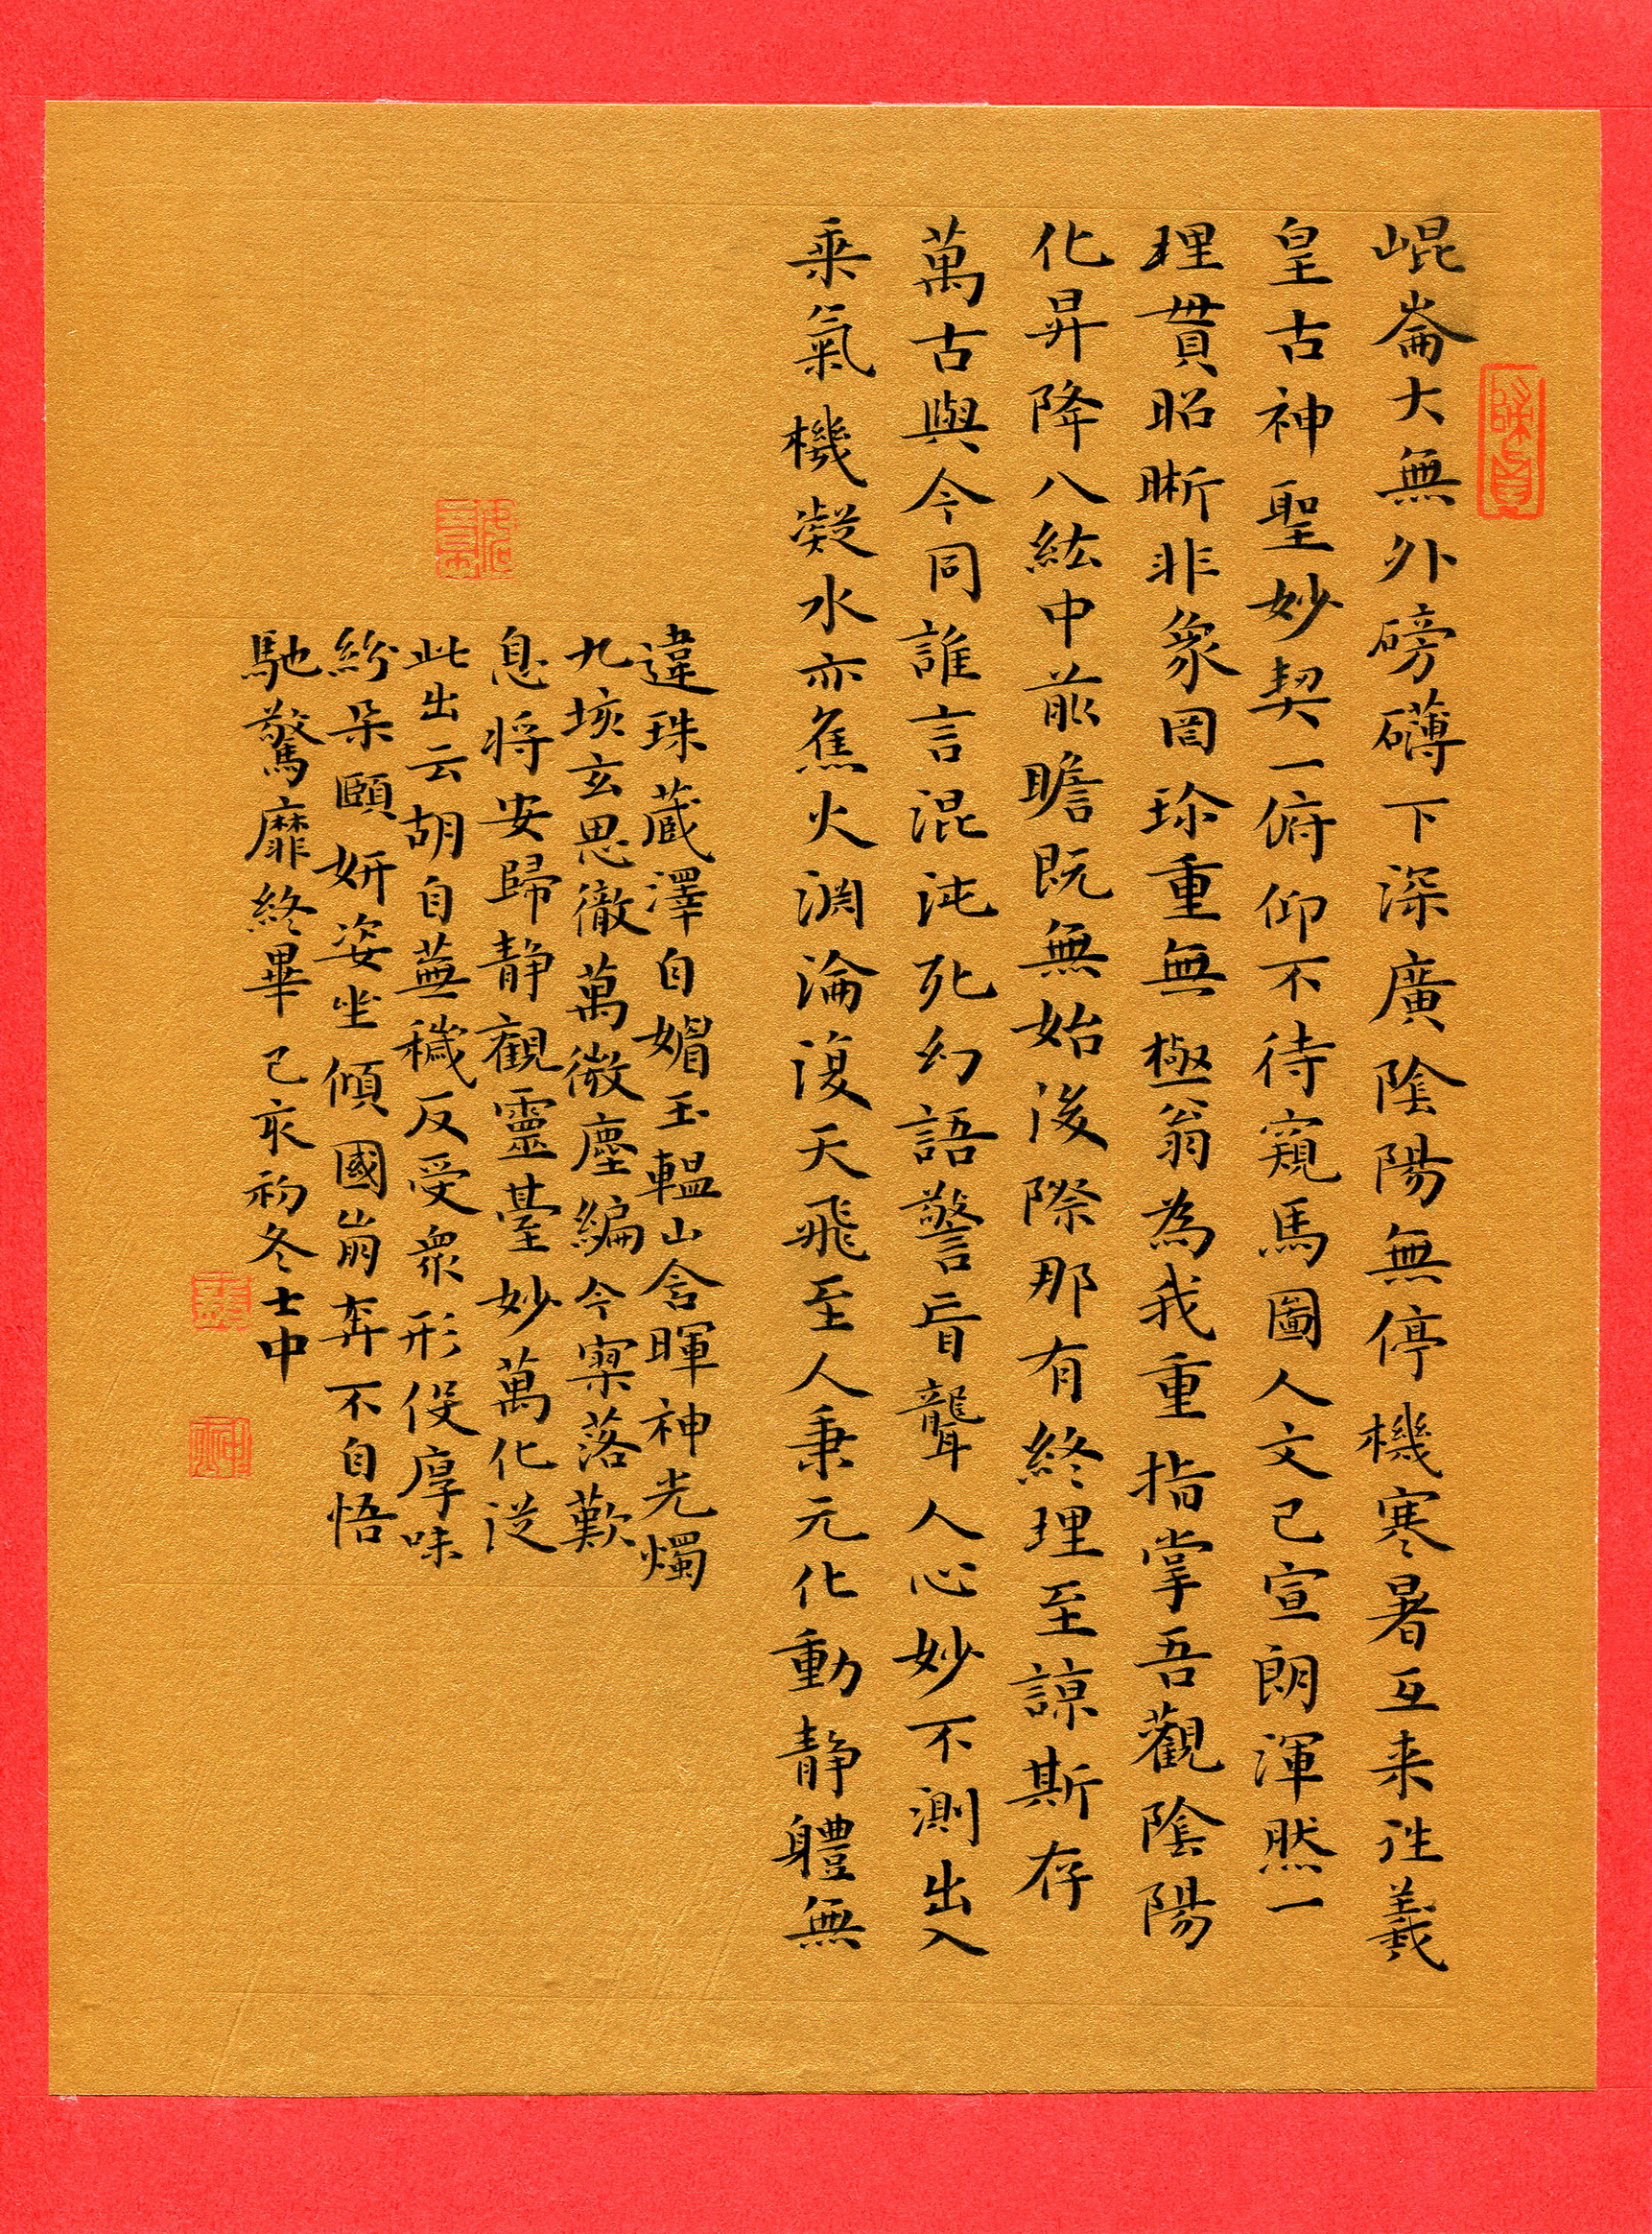 崐崙大無外磅礴下深廣陰陽無停機寒暑互来往羲
皇古神聖妙契一俯仰不待窺馬圖人文已宣朗渾然一
理貫昭晰非象罔珎重無極翁為我重指掌吾觀陰陽
化昇降八紘中前瞻既無始後際那有終理至諒斯存
萬古與今同誰言混沌死幻語警盲聾人心妙不測出入
乘氣機凝水亦焦火淵淪復天飛至人秉元化動静體無
違珠蔵澤自媚玉韞山含暉神光燭
九垓玄思徹萬微塵編今寥落歎
息将安歸静觀靈臺妙萬化從
此出云胡自蕪穢反受衆形役厚味
紛朵頤妍姿坐傾國崩奔不自悟
馳騖靡終畢 己亥初冬士中